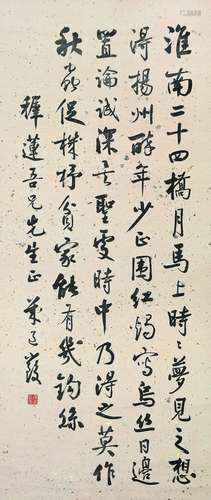 淮南二十四橋月馬上時〻夢見之想
得揚州醉年少正圍紅燭寫烏絲日邊
置論誠深矣聖處時中乃得之莫作
秋蟲促機杼貧家能有幾絇絲
穉蓮吾兄先生正